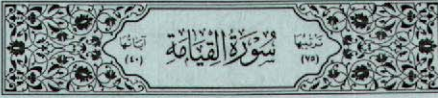 ترتيبها (٧٥) سُورَةُ القِيَامَةِ آياتها (٤٠)